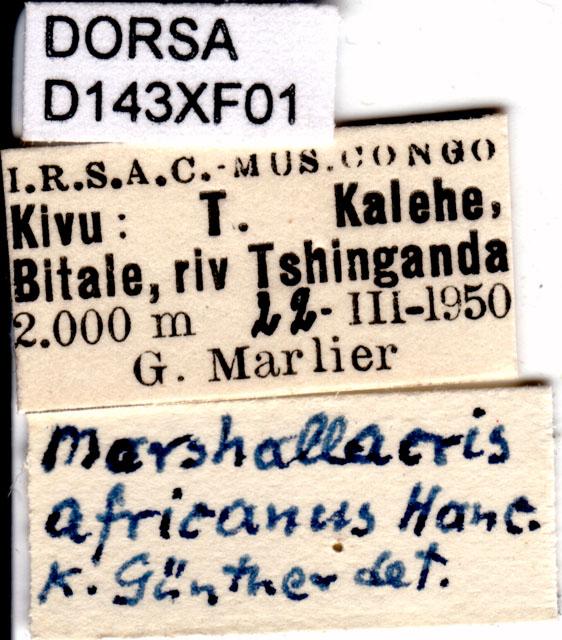 DORSA
D143XF01
I.R.S.A.C.-MUS.CONGO
Kivu: T. Kalehe,
Bitale, riv Tshinganda
2.000 m 22-III-1950
G. Marlier
Marshallacris
africanus Hanc.
K. Günther det.